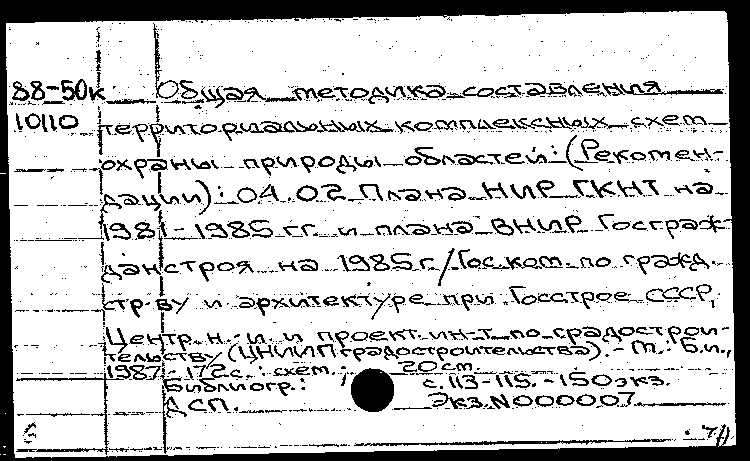 88-50к Общая методика составления
10110 территориальных комплексных схем
охраны природы областей: (Рекомен-
дации): 04.02 Плана НИР ГКНТ на
1981-1985 гг. и плана ВНИР Госграж-
данстроя на 1985 г./Гос. ком. по гражд.
стр-ву и архитектуре при Госстрое СССР,
Центр. н.-и. и проект. ин-т по градострои-
тельству (ЦНИИПградостроительства).- М.: Б.и.,
1987.-172 с.: схем.; 20см.
Библиогр.: с.113-115.-150экз.
ДСП. Экз.N000007.